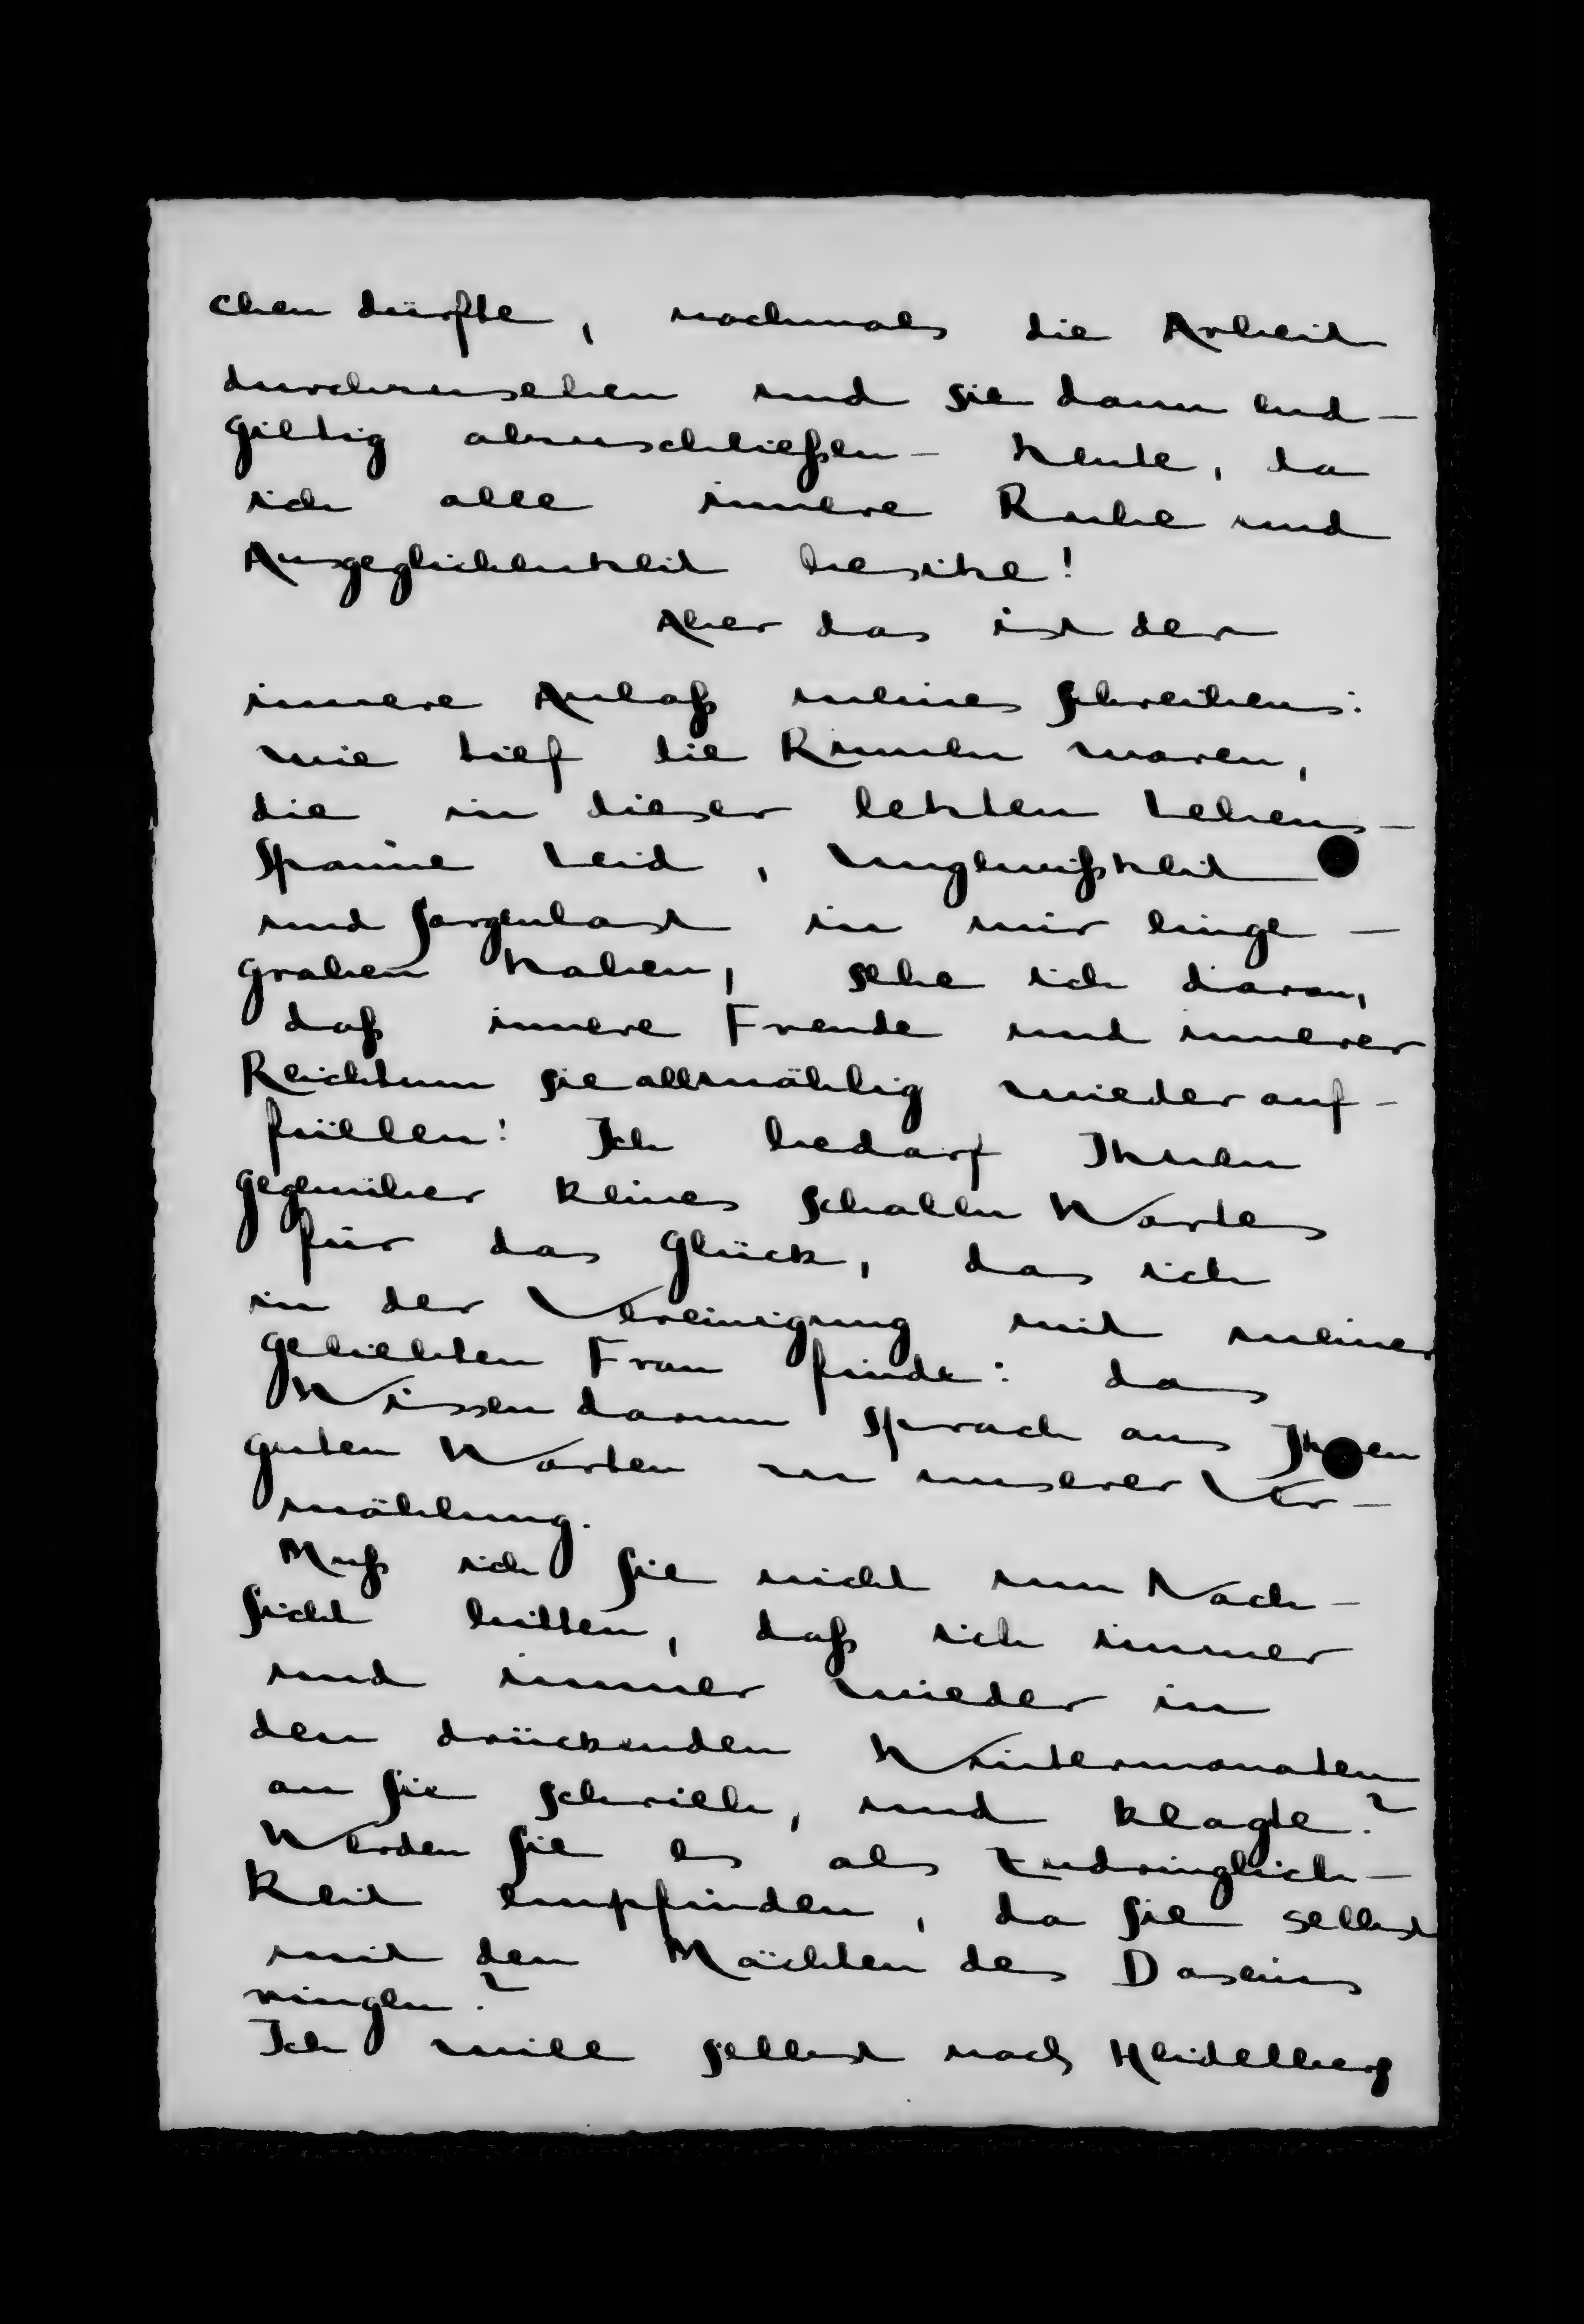 chen dürfte, nochmals die Arbeit
durchzusehen und sie dann end-
giltig abzuschließen – heute, da
ich alle innere Ruhe und
Ausgeglichenheit besitze!
Aber das ist der
innere Anlaß meines Schreibens:
wie tief die Runen waren,
die in dieser letzten Lebens-
spanne Leid, Ungewißheit
und Sorgenlast in mir einge-
graben haben, sehe ich daran,
daß innere Freude und innerer
Reichtum sie allmählig wieder auf-
füllen! Ich bedarf Ihnen
gegenüber keines schalen Wortes
für das Glück, das ich
in der Vereinigung mit meiner
geliebten Frau finde: das
Wissen darum sprach aus Ihren
guten Worten zu unserer Ver-
mählung.
Muß ich Sie nicht um Nach-
sicht bitten, daß ich immer
und immer wieder in
den drückenden Wintermonaten
an Sie schrieb, und klagte?
Werden Sie es als Zudringlich-
keit empfinden, da Sie selbst
mit den Mächten des Daseins
ringen?
Ich will selbst nach Heidelberg